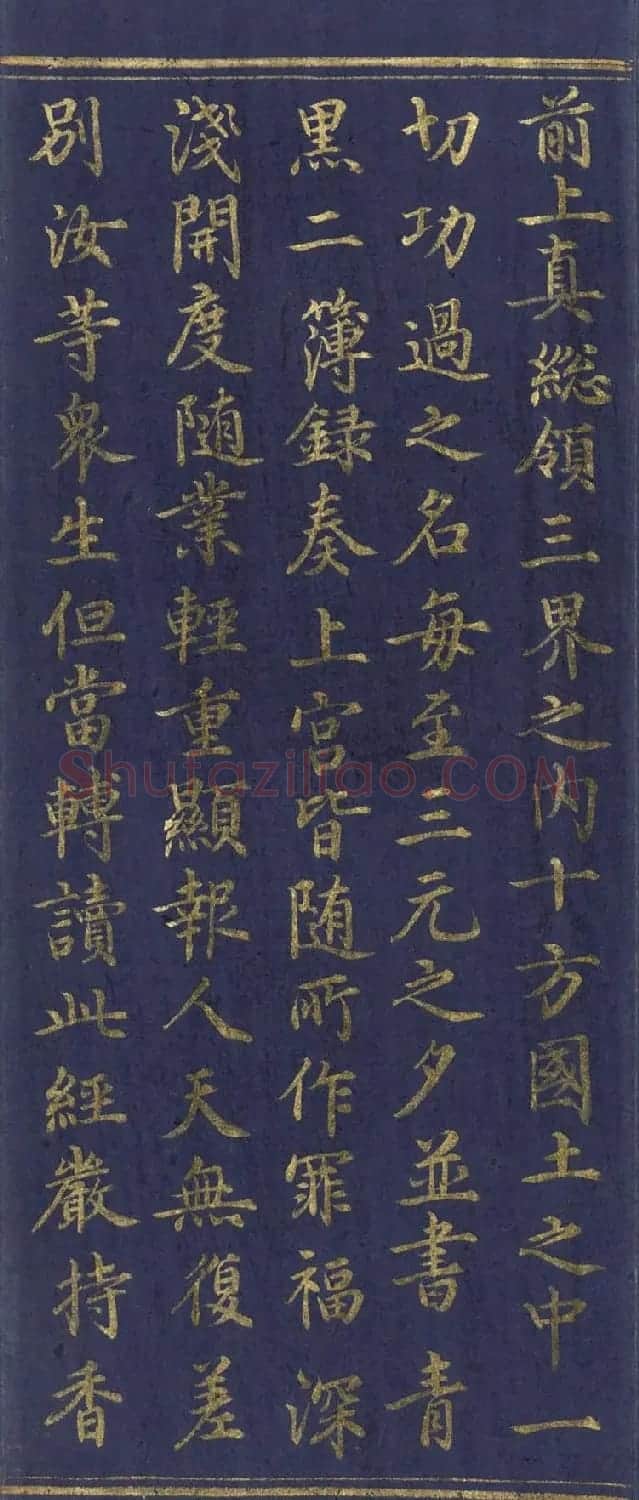 前上真総領三界之內十方國土之中一
切功過之名每至三元之夕並書青
黑二簿録奏上宮皆随所作罪福深
淺開度随業輕重顯報人天無復差
別汝等衆生但當轉讀此經嚴持香
Shufaziliao.COM